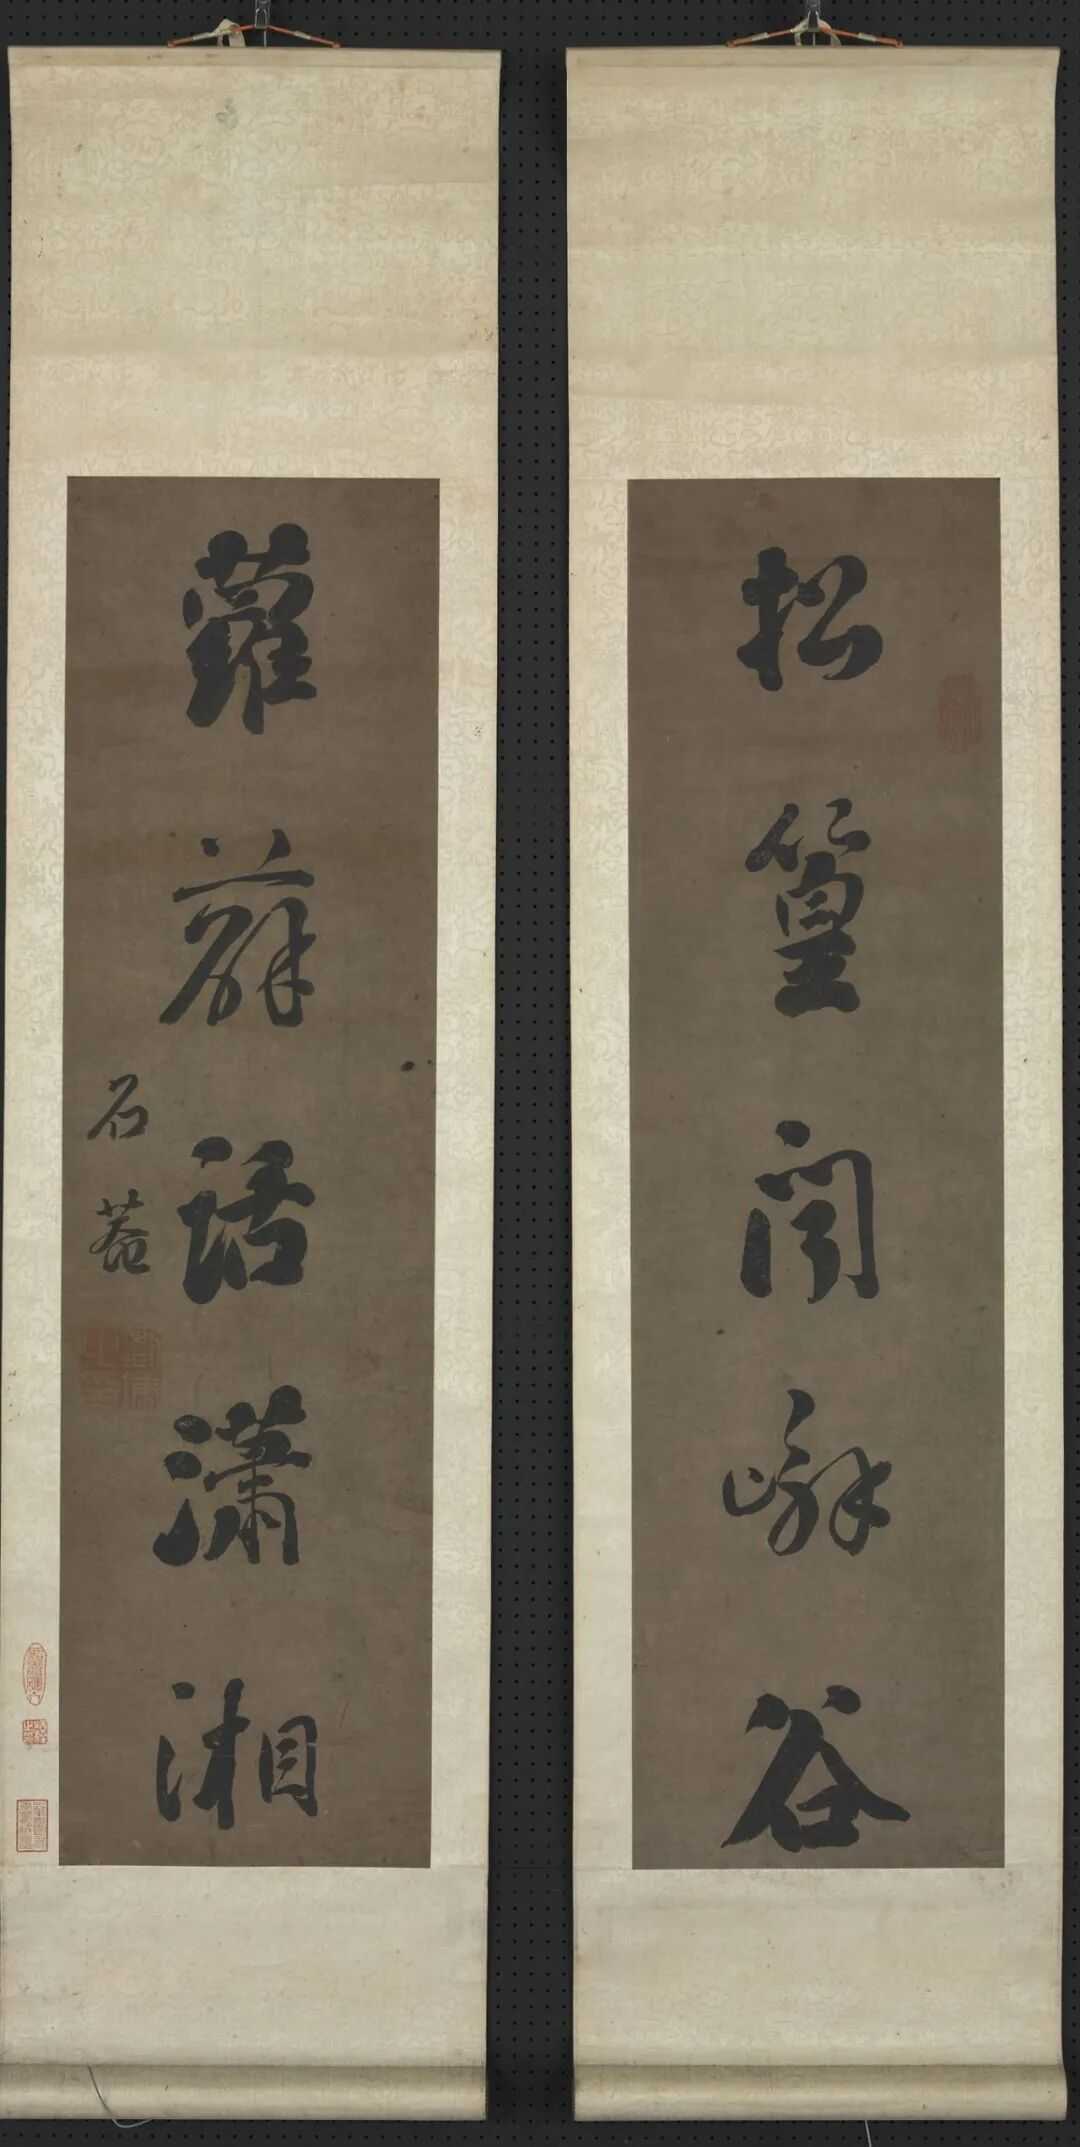 松篁閒嶰谷
蘿薜話瀟湘
石菴